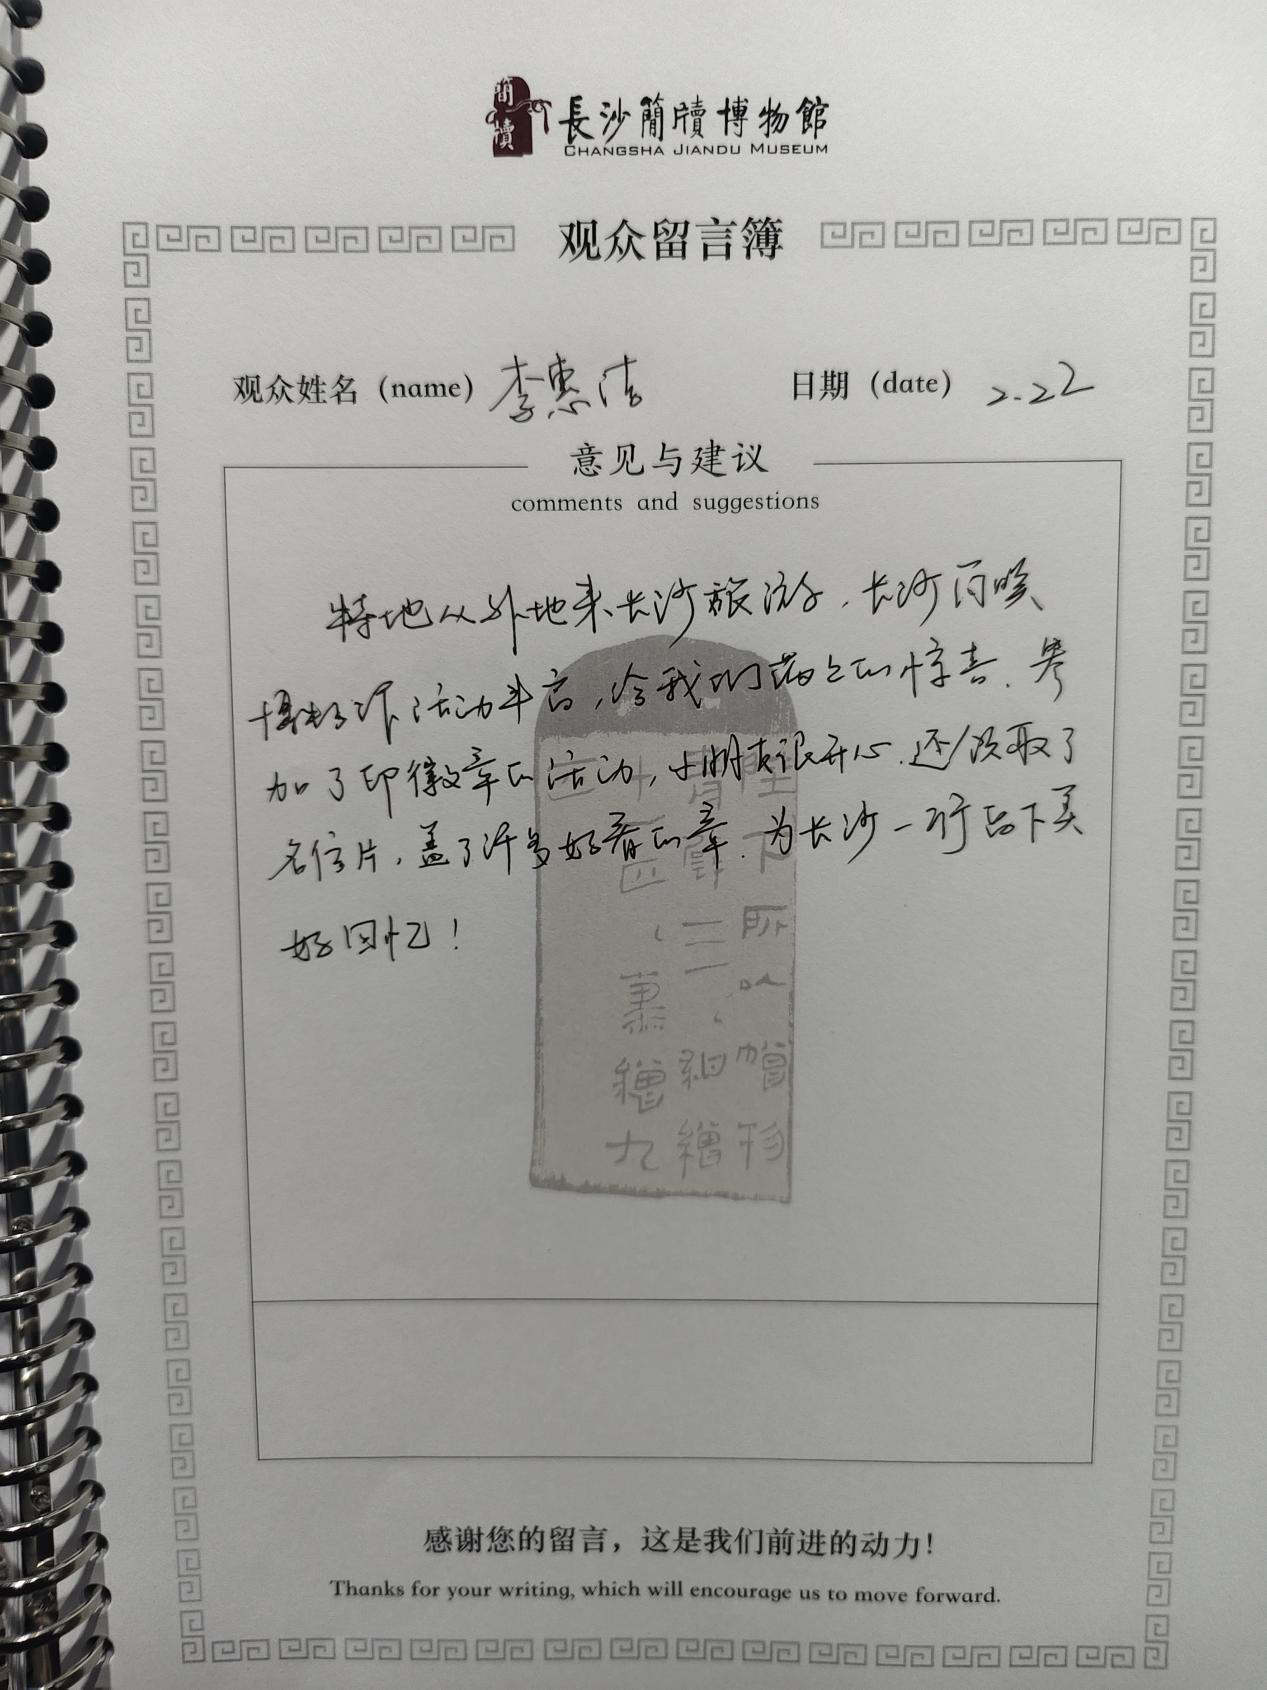 簡牘
長沙簡牘博物館
CHANGSHA JIANDU MUSEUM
观众留言簿
观众姓名（name）李惠洁
日期（date） 2.22
意见与建议
comments and suggestions
特地从外地来长沙旅游，长沙
活动丰富，给我们满满的惊喜．参
加了印徽章的活动，小朋友很开心．还领取了
名信片，盖了许多好看的章．为长沙一行留下美
好回忆！
所以
三
細繒
九
感谢您的留言，这是我们前进的动力！
Thanks for your writing, which will encourage us to move forward.